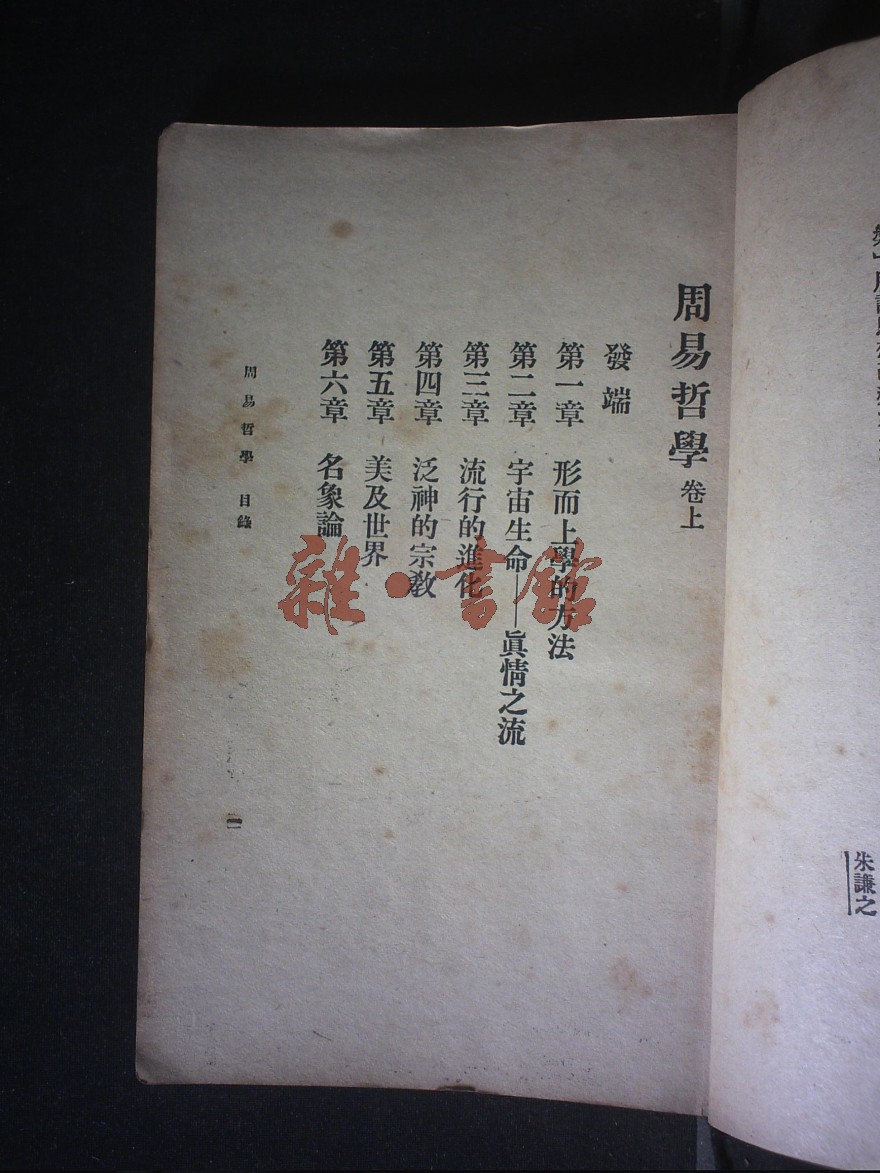 朱謙之
周易哲學 卷上
發端
第一章 形而上學的方法
第二章 宇宙生命——眞情之流
第三章 流行的進化
第四章 泛神的宗教
第五章 美及世界
第六章 名象論
周易哲學 目錄
一
雜·書館